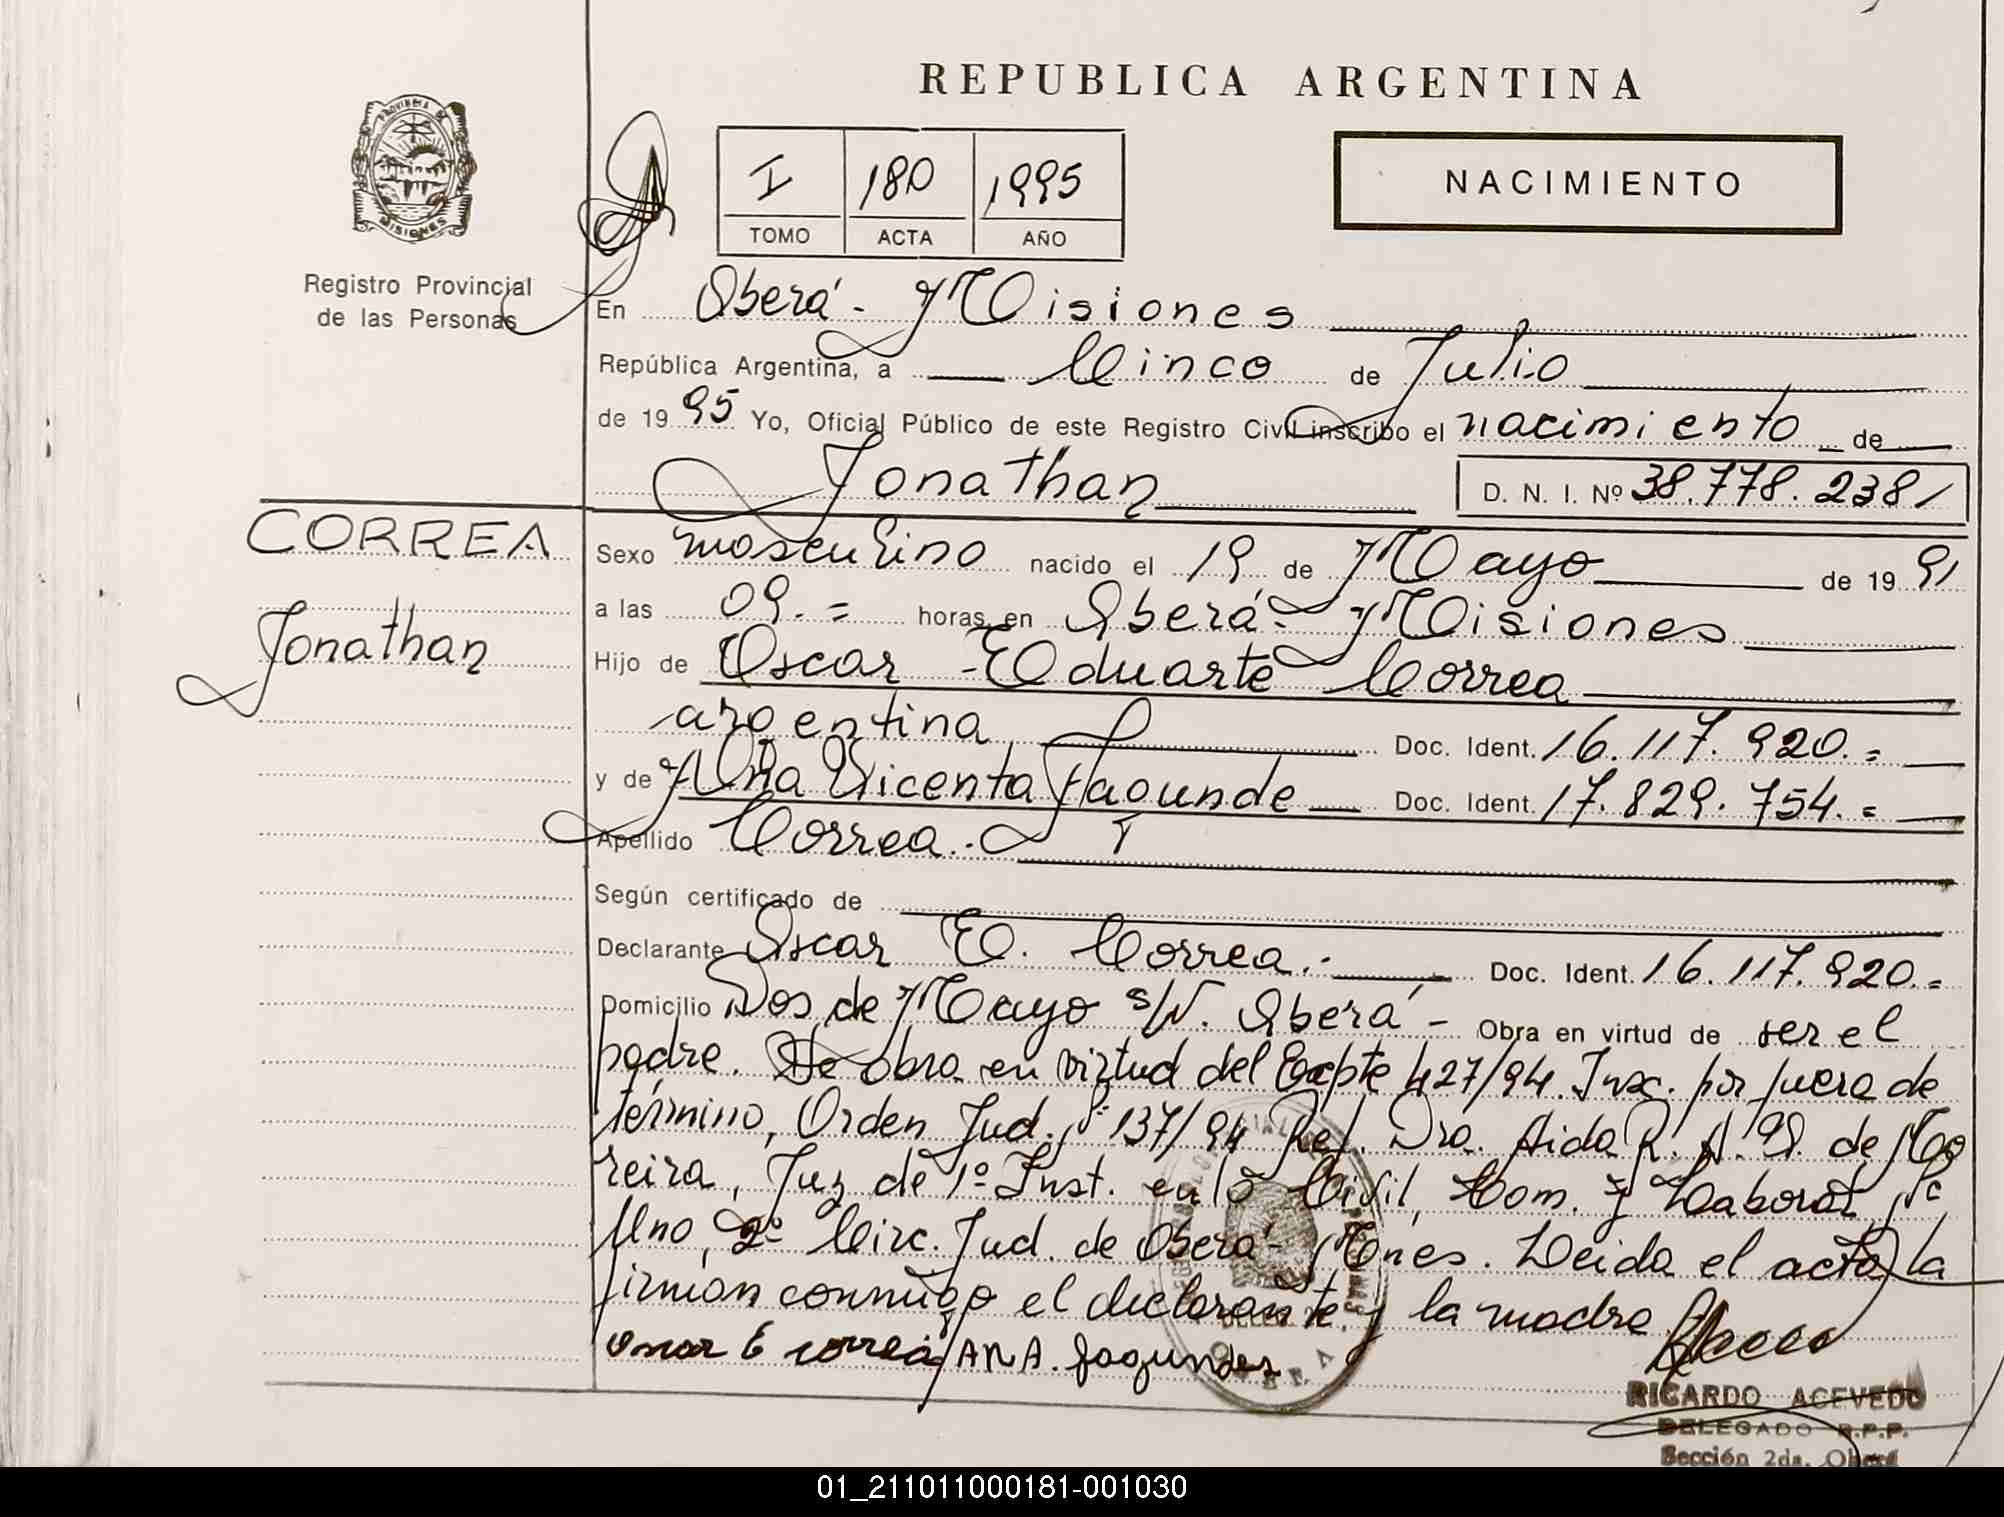 REPUBLICA ARGENTINA
PROVINCIA DE
MISIONES
Registro Provincial
de las Personas
I 180 1995
TOMO ACTA AÑO
NACIMIENTO
En Oberá - Misiones
República Argentina, a Cinco de Julio
de 1995 Yo, Oficial Público de este Registro Civil inscribo el nacimiento de
Jonathan D. N. I. Nº 38.778.238/
CORREA
Jonathan
Sexo masculino nacido el 19 de Mayo de 1991
a las 09.= horas en Oberá - Misiones
Hijo de Oscar Eduarte Correa
argentina Doc. Ident. 16.117.920.=
y de Ana Vicenta Fagunde Doc. Ident. 17.829.754.=
Apellido Correa.-
Según certificado de
Declarante Oscar E. Correa.- Doc. Ident. 16.117.920.=
Domicilio Dos de Mayo s/N. Oberá - Obra en virtud de ser el
padre. Se obra en virtud del Expte 427/94. Insc. por fuera de
término, Orden Jud. Nº 137/94 Ref. Dra. Aida R. N. de Mo
reira, Juz de 1º Inst. en lo Civil, Com. y Laboral Nº
Uno, 2º Circ. Jud. de Oberá - Mnes. Leida el acta la
firman conmigo el declarante y la madre
Oscar E correa ANA. fagundes
RICARDO ACEVEDO
DELEGADO R.P.P.
Sección 2da. Oberá
01_211011000181-001030